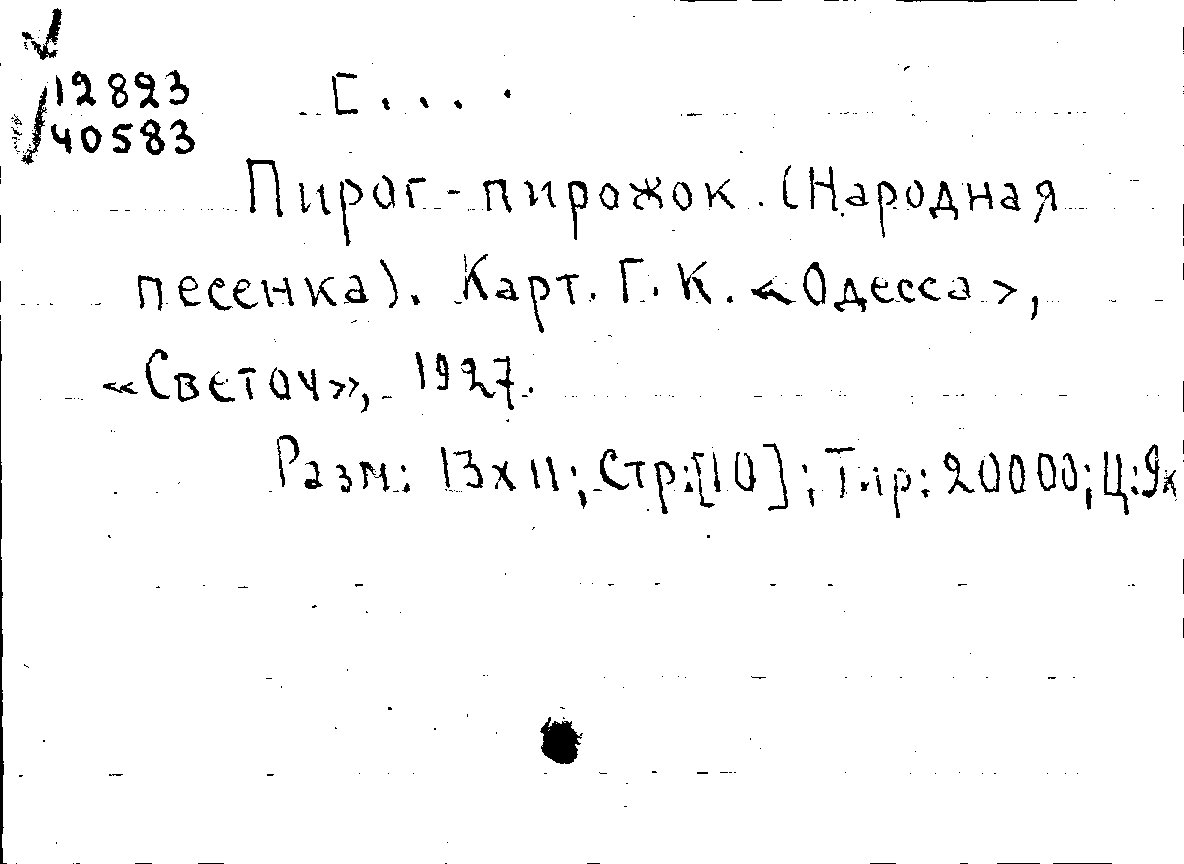 12823 [....
40583
Пирог-пирожок. (Народная
песенка). Карт. Г. К. «Одесса>,
«Светоч», 1927.
Разм: 13х11; Стр:[10]; Тир: 20000; Ц:9к